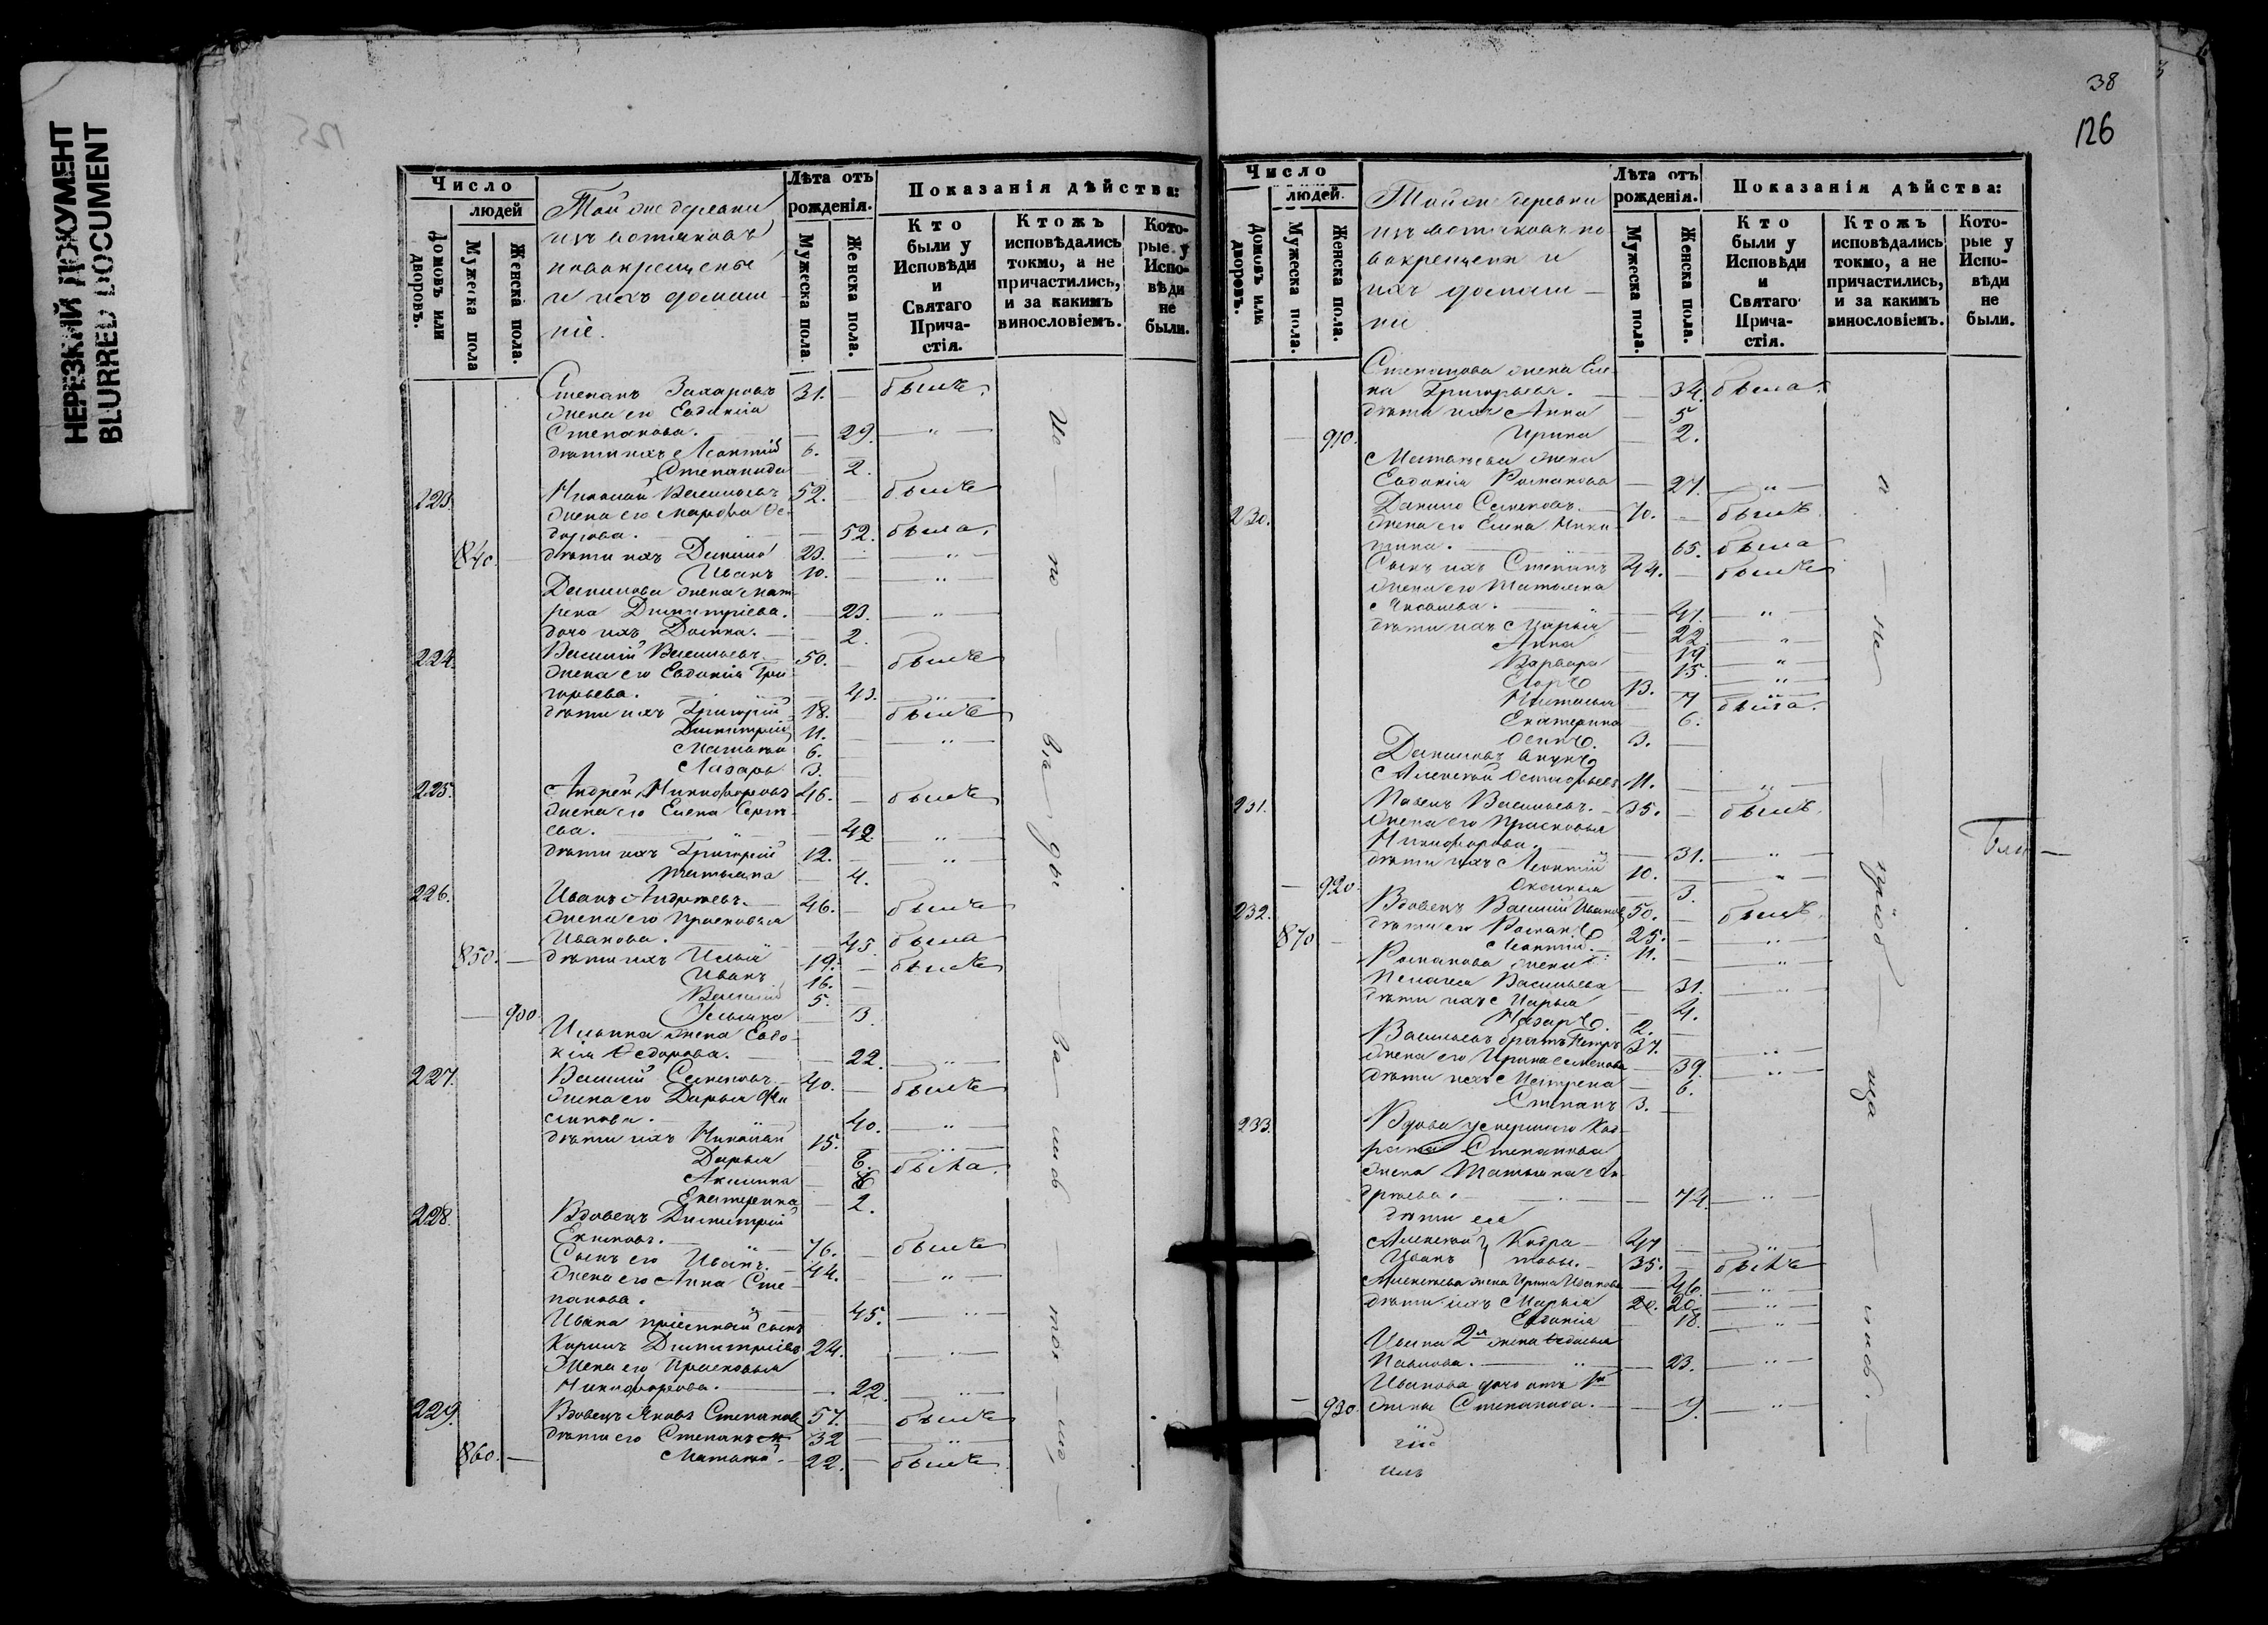 НЕРЕЗКИЙ ДОКУМЕНТ
BLURRED DOCUMENT
Число
людей
Домовъ или дворовъ.
Мужеска пола
Женска пола.
Той же деревни
изъ вотяковъ
новокрещены
и ихъ домаш-
ніе.
Лѣта отъ рожденія.
Мужеска пола
Женска пола.
Показанія дѣйства:
Кто были у Исповѣди и Святаго Прича-стія.
Ктожъ исповѣдались токмо, а не причастились, и за какимъ винословіемъ.
Кото-рые у Испо-вѣди не были.
Степанъ Захаровъ 31. — былъ
жена его Евдокія
Степанова. — 29. — " —
дѣти ихъ Леонтій 6.
Степанида — 2.
223. Николай Васильевъ 52. — былъ
жена его Марфа Ѳе-
дорова. — 52. была.
840. — дѣти ихъ Данило 23. — " —
Иванъ 10. — " —
Данилова жена Мат-
рена Димитріева. — 23. — " —
дочь ихъ Домна. — 2.
224. Василій Васильевъ 50. — былъ
жена его Евдокія Гри-
горьева. — 43. — " —
дѣти ихъ Григорій 18. — былъ
Димитрій 11. — " —
Матвѣй 6.
Лазарь 3.
225. Андрей Никифоровъ 46. — былъ
жена его Елена Сергѣ-
ева. — 42 — " —
дѣти ихъ Григорій 12. — " —
Татьяна — 4.
226. Иванъ Андреевъ. 46. — былъ
жена его Прасковья
Иванова. — 45 была
850. — дѣти ихъ Илья 19. — былъ
Иванъ 16. —
Василій 5.
— 900 Ульяна — 3.
Ильина жена Евдо-
кія Ѳедорова. — 22. — " —
227. Василій Семеновъ 40. — былъ
жена его Дарья
— 40. — " —
дѣти ихъ Николай 15. — " —
Дарья — была.
Акилина —
Екатерина — 2.
228. Вдовецъ Димитрій
76. — былъ
Сынъ его Иванъ. 44. — " —
жена его Анна Сте-
панова. — 45. — " —
Ивана пріемный сынъ
Димитріевъ 24. — " —
Жена его Прасковья
Никифорова. — 22. — " —
229. Вдовецъ Яковъ Степановъ 57. — былъ
дѣти его Степанъ 32 — " —
860. — Матвѣй. 22. — былъ
38
126
Число
людей.
Домовъ или дворовъ.
Мужеска пола.
Женска пола.
Той же деревни
изъ вотяковъ но
вокрещены и
ихъ домаш-
ніе
Лѣта отъ рожденія.
Мужеска пола.
Женска пола.
Показанія дѣйства:
Кто были у Исповѣди и Святаго Прича-стія.
Ктожъ исповѣдались токмо, а не причастились, и за какимъ винословіемъ.
Кото-рые у Испо-вѣди не были.
Степанова жена Еле-
на Григорьева. — 34. была.
дѣти ихъ Анна — 5
— 910. Ирина — 2.
Матвѣева жена
Евдокія Романова — 27. — " —
230. Данило Семеновъ. 70. — былъ
жена его Елена Ники-
тина. — 65. была
Сынъ ихъ Степанъ 44. — былъ
жена его Татьяна
Яковлева. — 41. — " —
дѣти ихъ Марья — 22. — " —
Анна — 19 — " —
Варвара — 15. — " —
Егоръ 13. — " —
Наталья — 7 была.
Екатерина — 6.
Осипъ. 3. —
Даниловъ внукъ
Алексѣй 11. — " —
231. Павелъ Васильевъ. 35. — былъ
жена его Прасковья
Никифорова. — 31. — " —
дѣти ихъ Леонтій 10. — " —
— 920. — 3.
232. Вдовецъ Василій Ивановъ 50. — былъ
870 — дѣти его Романъ 25. — " —
Леонтій. 11. — " —
Романова жена
Пелагея Васильева — 31. — " —
дѣти ихъ Марья — 4.
Назаръ. 2. —
Васильевъ братъ Петръ 37. — " —
жена его Ирина Семенова — 39. — " —
дѣти ихъ Матрена — 6.
Степанъ 3. —
233. Вдова умершаго Код-
рата Степанова
жена Татьяна Ан-
дреева. — 74. — " —
дѣти ея
Алексѣй } Кодра- 47 — " —
Иванъ } товы. 35. — былъ
Алексѣева жена Ирина Иванова — 46. — " —
дѣти ихъ Марья 20. — " —
Евдокія — 18. — " —
Ивана 2я жена
Павлова. — 23. — " —
Иванова дочь отъ 1й
— 930. жены Степанида. — 9. — " —